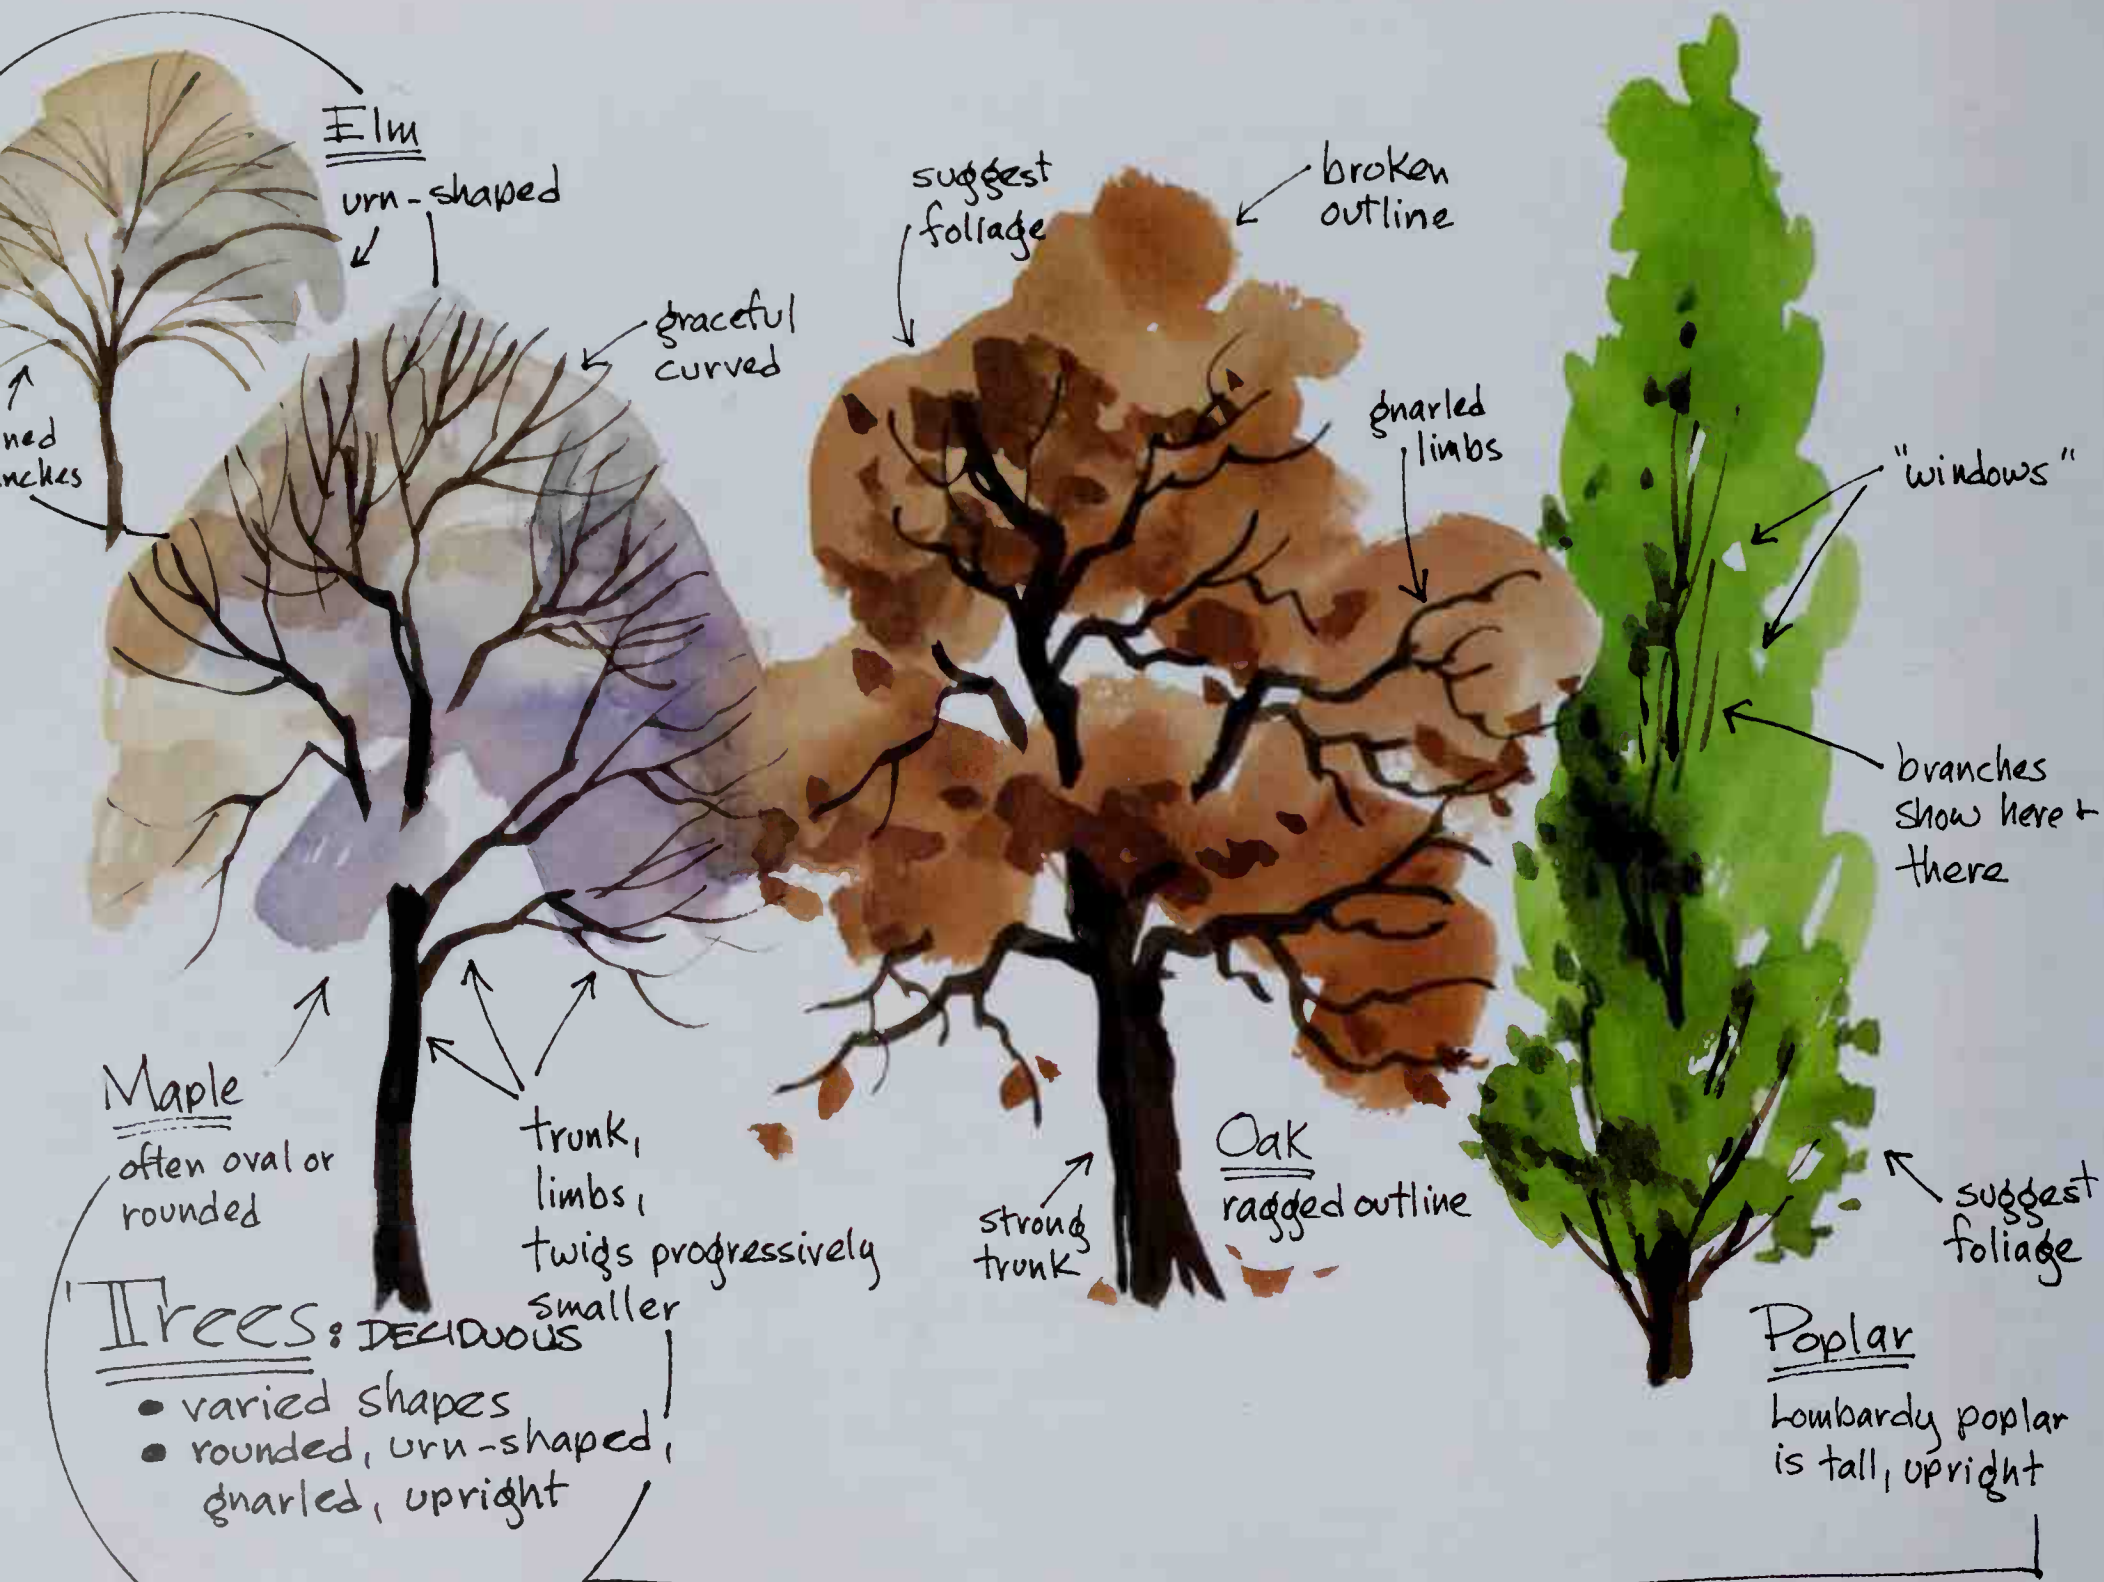 Elm
urn-shaped
graceful
curved
suggest
foliage
broken
outline
gnarled
limbs
"windows"
branches
show here +
there
Maple
often oval or
rounded
trunk,
limbs,
twigs progressively
smaller
strong
trunk
Oak
ragged outline
suggest
foliage
Poplar
Lombardy poplar
is tall, upright
Trees: DECIDUOUS
• varied shapes
• rounded, urn-shaped,
gnarled, upright